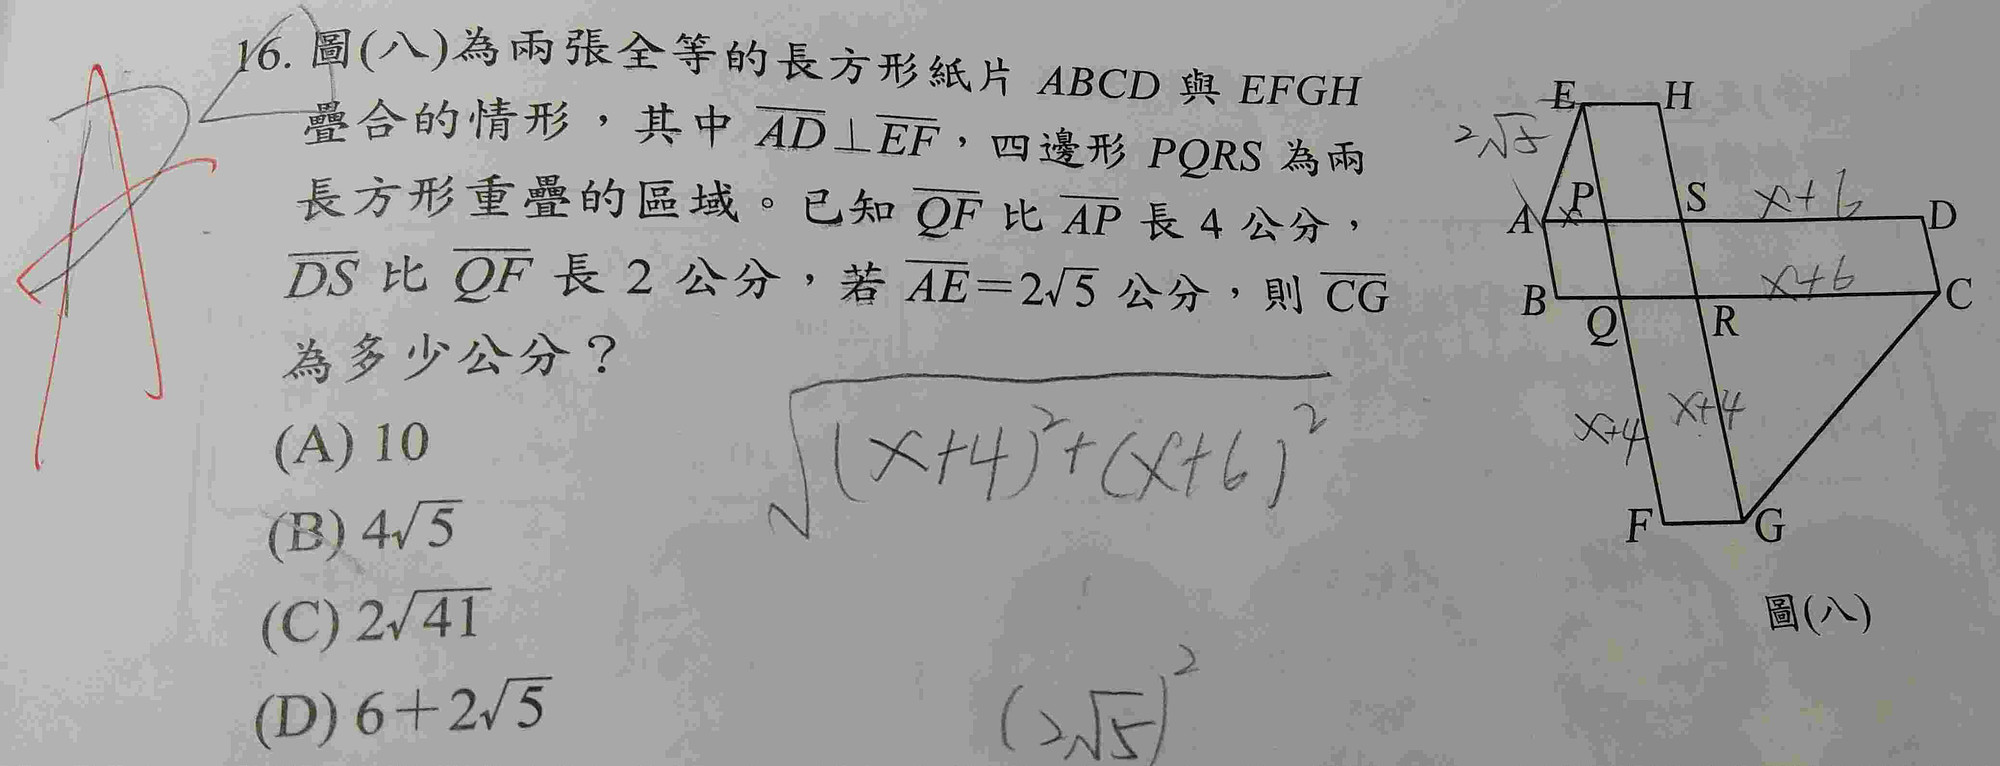 16. 圖(八)為兩張全等的長方形紙片 ABCD 與 EFGH
疊合的情形，其中 AD⊥EF，四邊形 PQRS 為兩
長方形重疊的區域。已知 QF 比 AP 長 4 公分，
DS 比 QF 長 2 公分，若 AE=2√5 公分，則 CG
為多少公分？
(A) 10
(B) 4√5
(C) 2√41
(D) 6+2√5
√(x+4)²+(x+6)²
(2√5)²
E H
2√5
P S x+6
A x D
x+6
B Q R C
x+4 x+4
F G
圖(八)